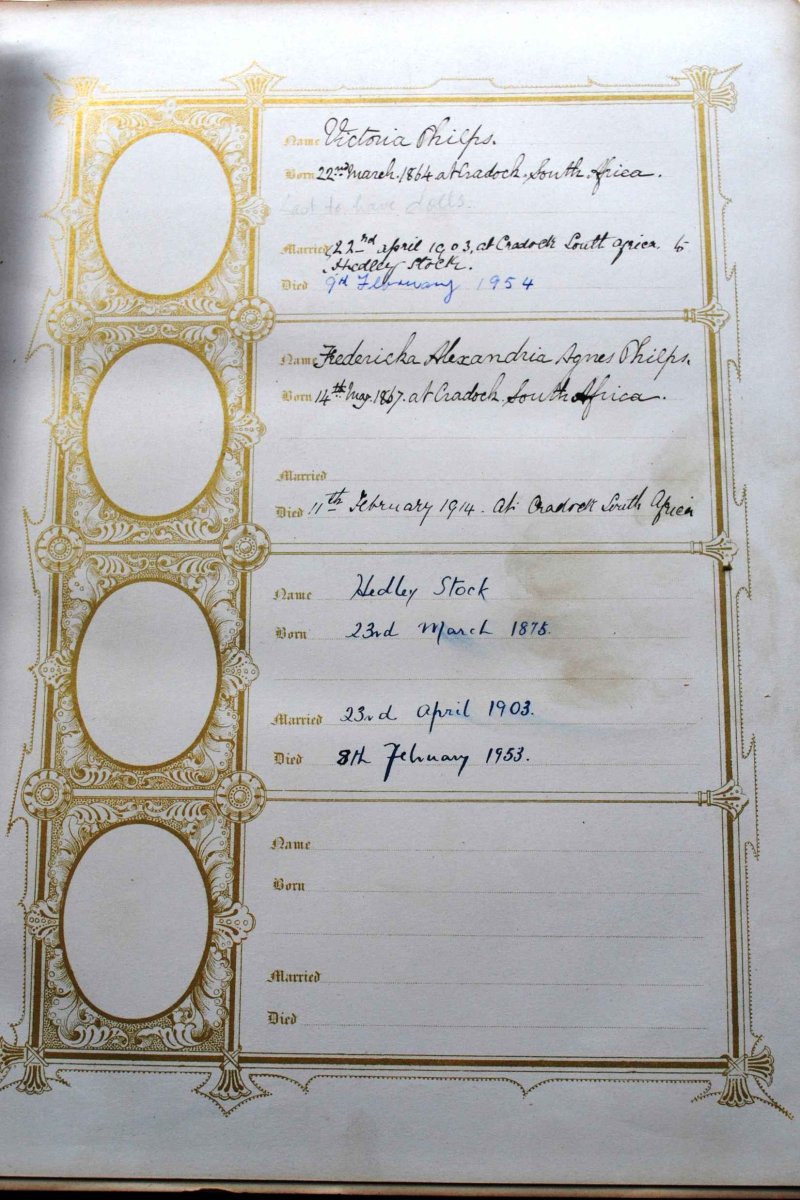 Name Victoria Philps.
Born 22nd March. 1864 at Cradock, South Africa.
Last to have dolls.
Married 22nd April 1903, at Cradock South Africa to
Hedley Stock.
Died 9th February 1954
Name Fredericka Alexandria Agnes Philps.
Born 14th May. 1867. at Cradock, South Africa.
Married
Died 11th February 1914. At Cradock South Africa
Name Hedley Stock
Born 23rd March 1875.
Married 23rd April 1903.
Died 8th February 1953.
Name
Born
Married
Died